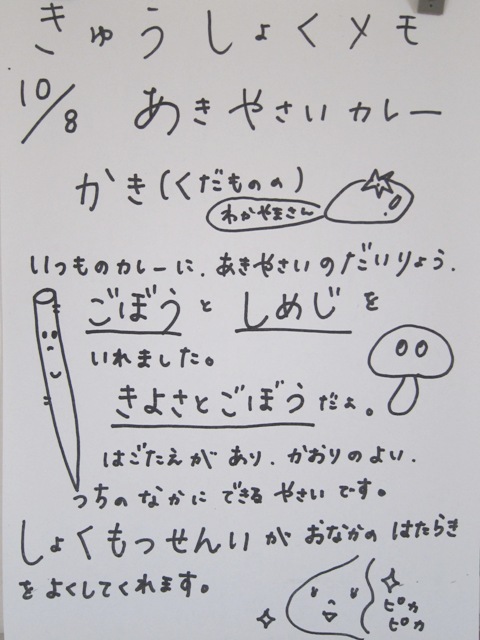 きゅうしょくメモ
10/8 あきやさいカレー
かき(くだものの)
わかやまさん
いつものカレーに、あきやさいのだいりょう、
ごぼうとしめじを
いれました。
きよさとごぼうだよ。
はごたえがあり、かおりのよい、
つちのなかにできるやさいです。
しょくもつせんいがおなかのはたらき
をよくしてくれます。
ピカ
ピカ